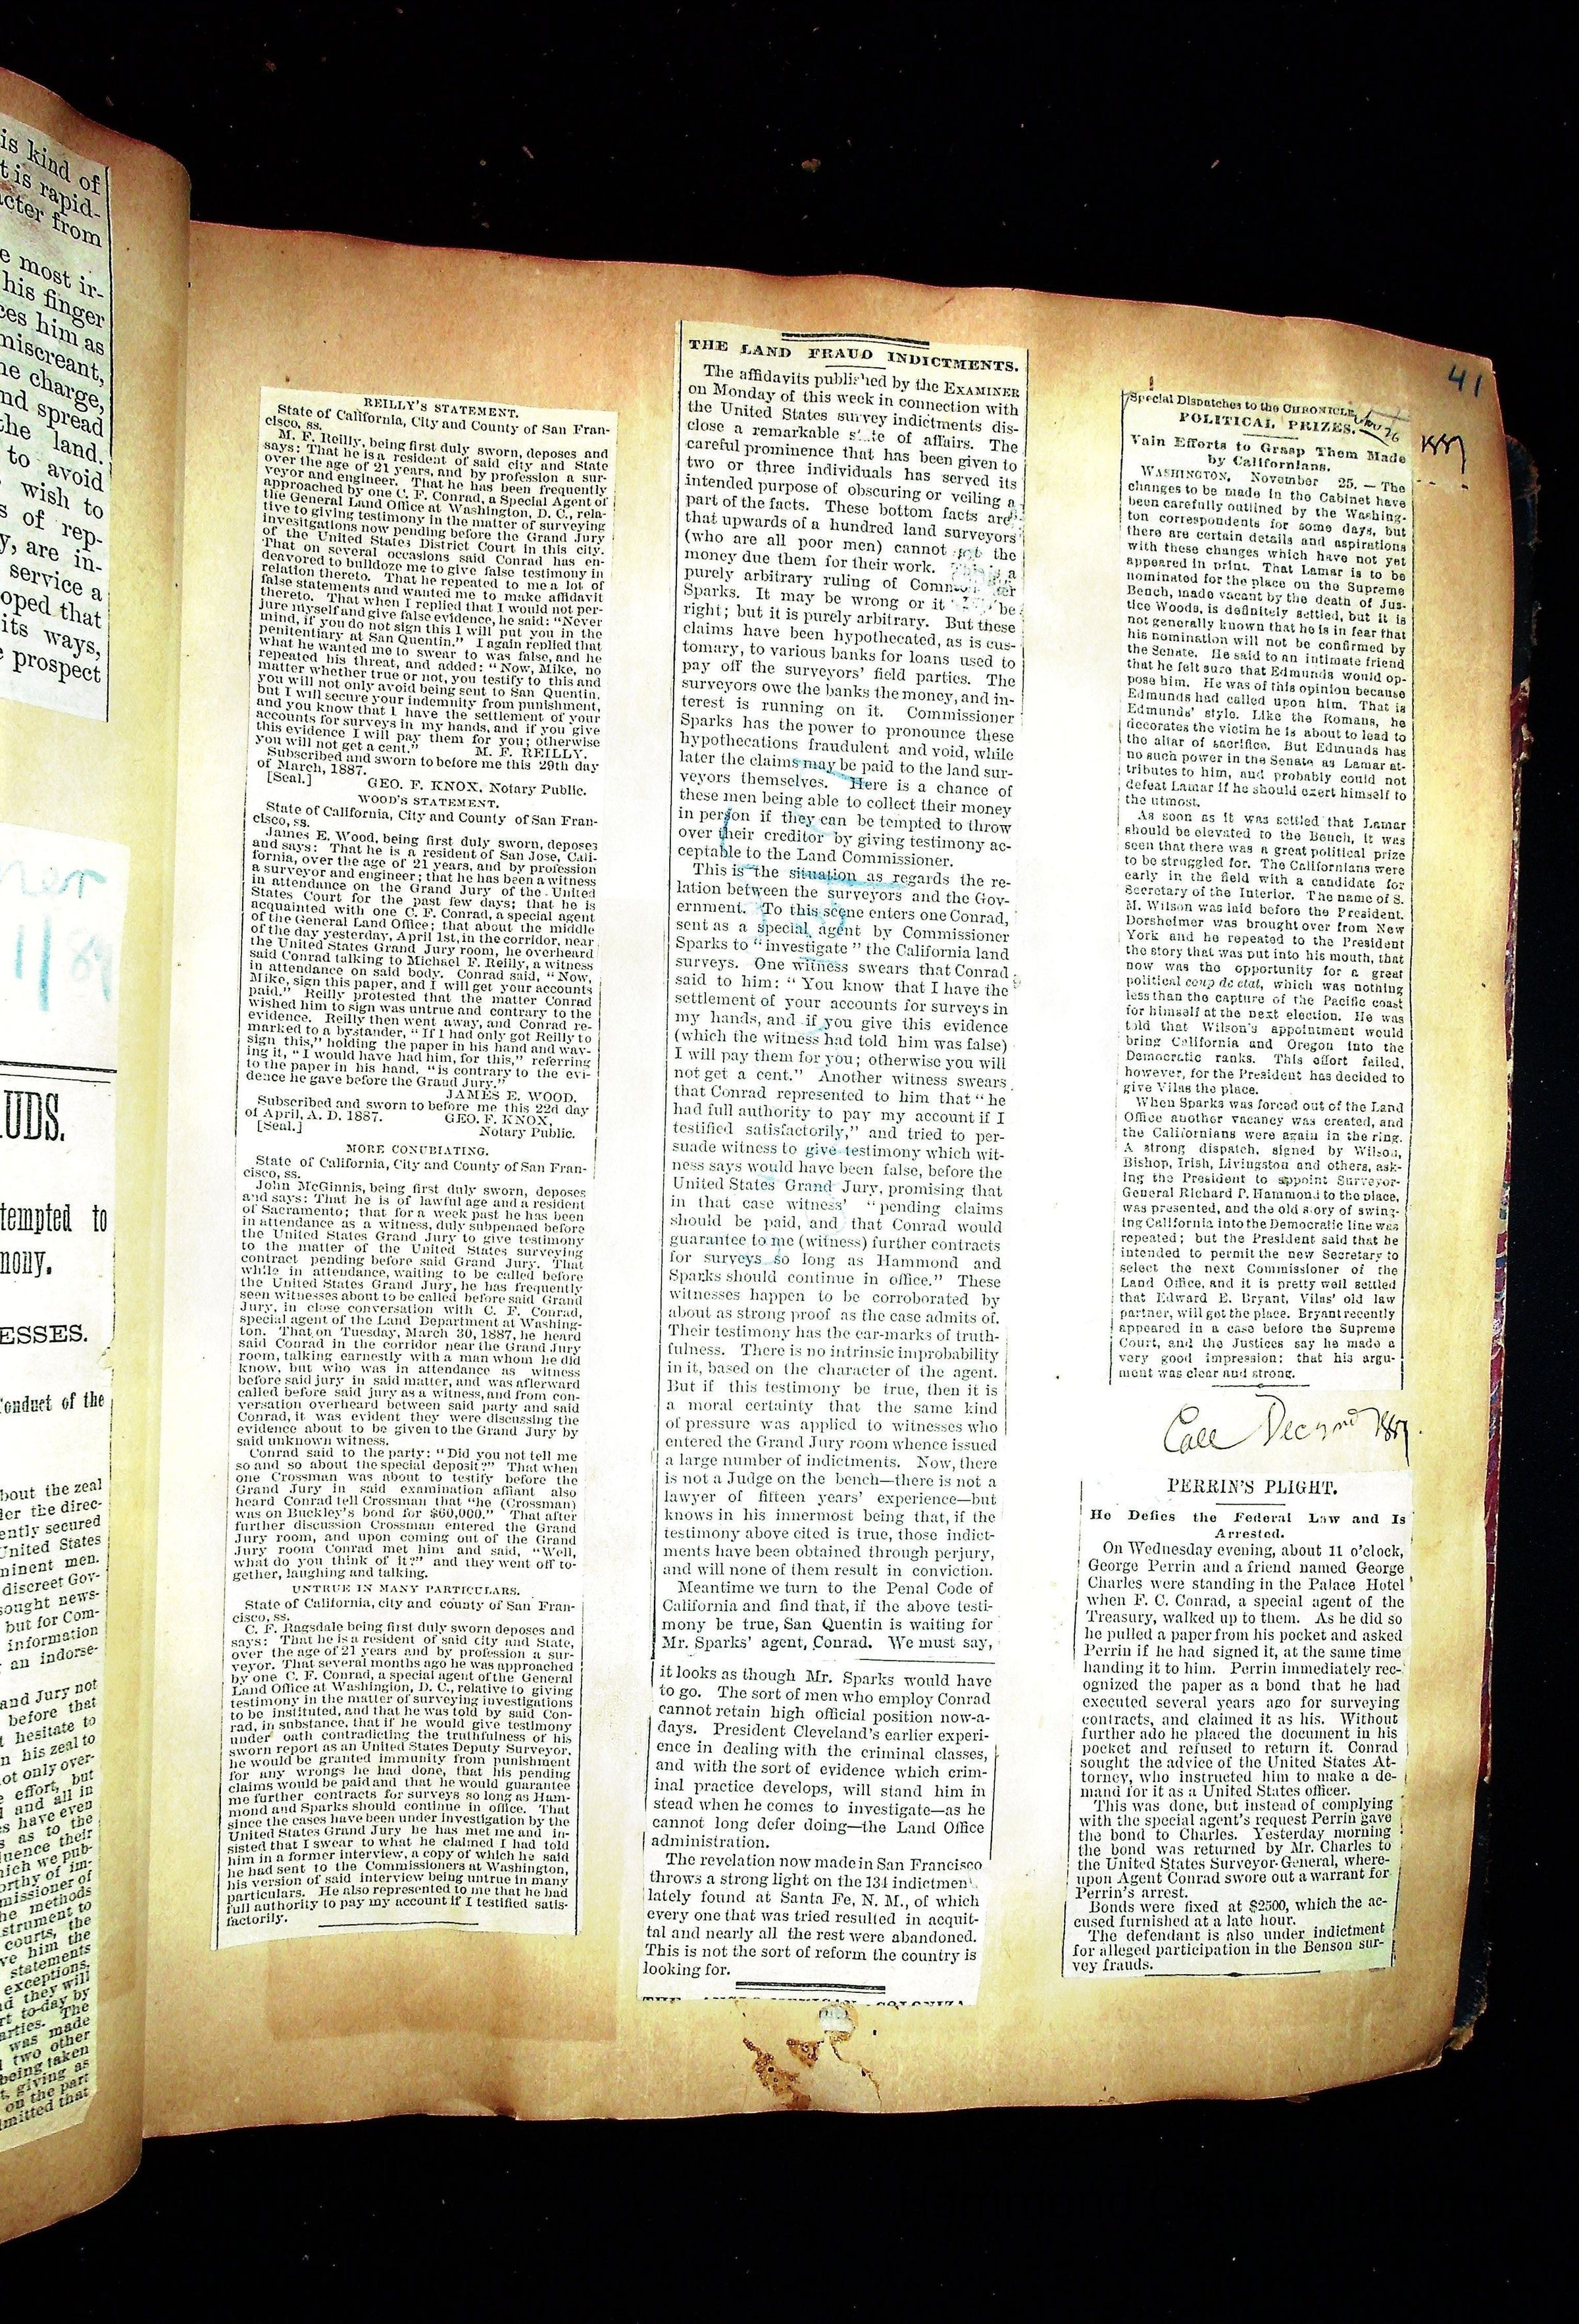 is kind of
t is rapid-
acter from
e most ir-
his finger
ces him as
miscreant,
he charge,
nd spread
the land.
to avoid
wish to
s of rep-
y, are in-
service a
oped that
its ways,
e prospect
UDS.
tempted to
mony.
ESSES.
Conduct of the
bout the zeal
der the direc-
ently secured
United States
minent men.
discreet Gov-
sought news-
but for Com-
information
an indorse-
and Jury not
before that
t hesitate to
n his zeal to
not only over-
effort, but
d and all in
s have even
as to the
luence their
hich we pub-
orthy of im-
missioner of
he methods
strument to
courts, the
ve him the
statements
exceptions,
nd they will
rt to-day by
arties. The
was made
d two other
being taken
t, giving as
on the part
mitted that
REILLY'S STATEMENT.
State of California, City and County of San Fran-
cisco, ss.
M. F. Reilly, being first duly sworn, deposes and
says: That he is a resident of said city and State
over the age of 21 years, and by profession a sur-
veyor and engineer. That he has been frequently
approached by one C. F. Conrad, a Special Agent of
the General Land Office at Washington, D. C., rela-
tive to giving testimony in the matter of surveying
invesitgations now pending before the Grand Jury
of the United States District Court in this city.
That on several occasions said Conrad has en-
deavored to bulldoze me to give false testimony in
relation thereto. That he repeated to me a lot of
false statements and wanted me to make affidavit
thereto. That when I replied that I would not per-
jure myself and give false evidence, he said: "Never
mind, if you do not sign this I will put you in the
penitentiary at San Quentin." I again replied that
what he wanted me to swear to was false, and he
repeated his threat, and added: "Now, Mike, no
matter whether true or not, you testify to this and
you will not only avoid being sent to San Quentin,
but I will secure your indemnity from punishment,
and you know that I have the settlement of your
accounts for surveys in my hands, and if you give
this evidence I will pay them for you; otherwise
you will not get a cent." M. F. REILLY.
Subscribed and sworn to before me this 29th day
of March, 1887.
[Seal.] GEO. F. KNOX, Notary Public.
WOOD'S STATEMENT.
State of California, City and County of San Fran-
cisco, ss.
James E. Wood, being first duly sworn, deposes
and says: That he is a resident of San Jose, Cali-
fornia, over the age of 21 years, and by profession
a surveyor and engineer; that he has been a witness
in attendance on the Grand Jury of the United
States Court for the past few days; that he is
acquainted with one C. F. Conrad, a special agent
of the General Land Office; that about the middle
of the day yesterday, April 1st, in the corridor, near
the United States Grand Jury room, he overheard
said Conrad talking to Michael F. Reilly, a witness
in attendance on said body. Conrad said, "Now,
Mike, sign this paper, and I will get your accounts
paid." Reilly protested that the matter Conrad
wished him to sign was untrue and contrary to the
evidence. Reilly then went away, and Conrad re-
marked to a bystander, "If I had only got Reilly to
sign this," holding the paper in his hand and wav-
ing it, "I would have had him, for this," referring
to the paper in his hand, "is contrary to the evi-
dence he gave before the Grand Jury."
JAMES E. WOOD.
Subscribed and sworn to before me this 22d day
of April, A. D. 1887. GEO. F. KNOX,
[Seal.] Notary Public.
MORE CONUBIATING.
State of California, City and County of San Fran-
cisco, ss.
John McGinnis, being first duly sworn, deposes
and says: That he is of lawful age and a resident
of Sacramento; that for a week past he has been
in attendance as a witness, duly subpenaed before
the United States Grand Jury to give testimony
to the matter of the United States surveying
contract pending before said Grand Jury. That
while in attendance, waiting to be called before
the United States Grand Jury, he has frequently
seen witnesses about to be called before said Grand
Jury, in close conversation with C. F. Conrad,
special agent of the Land Department at Washing-
ton. That on Tuesday, March 30, 1887, he heard
said Conrad in the corridor near the Grand Jury
room, talking earnestly with a man whom he did
know, but who was in attendance as witness
before said jury in said matter, and was afterward
called before said jury as a witness, and from con-
versation overheard between said party and said
Conrad, it was evident they were discussing the
evidence about to be given to the Grand Jury by
said unknown witness.
Conrad said to the party: "Did you not tell me
so and so about the special deposit?" That when
one Crossman was about to testify before the
Grand Jury in said examination affiant also
heard Conrad tell Crossman that "he (Crossman)
was on Buckley's bond for $60,000." That after
further discussion Crossman entered the Grand
Jury room, and upon coming out of the Grand
Jury room Conrad met him and said, "Well,
what do you think of it?" and they went off to-
gether, laughing and talking.
UNTRUE IN MANY PARTICULARS.
State of California, city and county of San Fran-
cisco, ss.
C. F. Ragsdale being first duly sworn deposes and
says: That he is a resident of said city and State,
over the age of 21 years and by profession a sur-
veyor. That several months ago he was approached
by one C. F. Conrad, a special agent of the General
Land Office at Washington, D. C., relative to giving
testimony in the matter of surveying investigations
to be instituted, and that he was told by said Con-
rad, in substance, that if he would give testimony
under oath contradicting the truthfulness of his
sworn report as an United States Deputy Surveyor,
he would be granted immunity from punishment
for any wrongs he had done, that his pending
claims would be paid and that he would guarantee
me further contracts for surveys so long as Ham-
mond and Sparks should continue in office. That
since the cases have been under investigation by the
United States Grand Jury he has met me and in-
sisted that I swear to what he claimed I had told
him in a former interview, a copy of which he said
he had sent to the Commissioners at Washington,
his version of said interview being untrue in many
particulars. He also represented to me that he had
full authority to pay my account if I testified satis-
factorily.
THE LAND FRAUD INDICTMENTS.
The affidavits published by the EXAMINER
on Monday of this week in connection with
the United States survey indictments dis-
close a remarkable state of affairs. The
careful prominence that has been given to
two or three individuals has served its
intended purpose of obscuring or veiling a
part of the facts. These bottom facts are
that upwards of a hundred land surveyors
(who are all poor men) cannot get the
money due them for their work. This is a
purely arbitrary ruling of Commissioner
Sparks. It may be wrong or it may be
right; but it is purely arbitrary. But these
claims have been hypothecated, as is cus-
tomary, to various banks for loans used to
pay off the surveyors' field parties. The
surveyors owe the banks the money, and in-
terest is running on it. Commissioner
Sparks has the power to pronounce these
hypothecations fraudulent and void, while
later the claims may be paid to the land sur-
veyors themselves. Here is a chance of
these men being able to collect their money
in person if they can be tempted to throw
over their creditor by giving testimony ac-
ceptable to the Land Commissioner.
This is the situation as regards the re-
lation between the surveyors and the Gov-
ernment. To this scene enters one Conrad,
sent as a special agent by Commissioner
Sparks to "investigate" the California land
surveys. One witness swears that Conrad
said to him: "You know that I have the
settlement of your accounts for surveys in
my hands, and if you give this evidence
(which the witness had told him was false)
I will pay them for you; otherwise you will
not get a cent." Another witness swears
that Conrad represented to him that "he
had full authority to pay my account if I
testified satisfactorily," and tried to per-
suade witness to give testimony which wit-
ness says would have been false, before the
United States Grand Jury, promising that
in that case witness' "pending claims
should be paid, and that Conrad would
guarantee to me (witness) further contracts
for surveys so long as Hammond and
Sparks should continue in office." These
witnesses happen to be corroborated by
about as strong proof as the case admits of.
Their testimony has the ear-marks of truth-
fulness. There is no intrinsic improbability
in it, based on the character of the agent.
But if this testimony be true, then it is
a moral certainty that the same kind
of pressure was applied to witnesses who
entered the Grand Jury room whence issued
a large number of indictments. Now, there
is not a Judge on the bench—there is not a
lawyer of fifteen years' experience—but
knows in his innermost being that, if the
testimony above cited is true, those indict-
ments have been obtained through perjury,
and will none of them result in conviction.
Meantime we turn to the Penal Code of
California and find that, if the above testi-
mony be true, San Quentin is waiting for
Mr. Sparks' agent, Conrad. We must say,
it looks as though Mr. Sparks would have
to go. The sort of men who employ Conrad
cannot retain high official position now-a-
days. President Cleveland's earlier experi-
ence in dealing with the criminal classes,
and with the sort of evidence which crim-
inal practice develops, will stand him in
stead when he comes to investigate—as he
cannot long defer doing—the Land Office
administration.
The revelation now made in San Francisco
throws a strong light on the 134 indictmen
lately found at Santa Fe, N. M., of which
every one that was tried resulted in acquit-
tal and nearly all the rest were abandoned.
This is not the sort of reform the country is
looking for.
41
Special Dispatches to the CHRONICLE.
Nov 26
1887
POLITICAL PRIZES.
Vain Efforts to Grasp Them Made
by Californians.
WASHINGTON, November 25.—The
changes to be made in the Cabinet have
been carefully outlined by the Washing-
ton correspondents for some days, but
there are certain details and aspirations
with these changes which have not yet
appeared in print. That Lamar is to be
nominated for the place on the Supreme
Bench, made vacant by the death of Jus-
tice Woods, is definitely settled, but it is
not generally known that he is in fear that
his nomination will not be confirmed by
the Senate. He said to an intimate friend
that he felt sure that Edmunds would op-
pose him. He was of this opinion because
Edmunds had called upon him. That is
Edmunds' style. Like the Romans, he
decorates the victim he is about to lead to
the altar of sacrifice. But Edmunds has
no such power in the Senate as Lamar at-
tributes to him, and probably could not
defeat Lamar if he should exert himself to
the utmost.
As soon as it was settled that Lamar
should be elevated to the Bench, it was
seen that there was a great political prize
to be struggled for. The Californians were
early in the field with a candidate for
Secretary of the Interior. The name of S.
M. Wilson was laid before the President.
Dorsheimer was brought over from New
York and he repeated to the President
the story that was put into his mouth, that
now was the opportunity for a great
political coup de etat, which was nothing
less than the capture of the Pacific coast
for himself at the next election. He was
told that Wilson's appointment would
bring California and Oregon into the
Democratic ranks. This effort failed,
however, for the President has decided to
give Vilas the place.
When Sparks was forced out of the Land
Office another vacancy was created, and
the Californians were again in the ring.
A strong dispatch, signed by Wilson,
Bishop, Irish, Livingston and others, ask-
ing the President to appoint Surveyor-
General Richard P. Hammond to the place,
was presented, and the old story of swing-
ing California into the Democratic line was
repeated; but the President said that he
intended to permit the new Secretary to
select the next Commissioner of the
Land Office, and it is pretty well settled
that Edward E. Bryant, Vilas' old law
partner, will get the place. Bryant recently
appeared in a case before the Supreme
Court, and the Justices say he made a
very good impression; that his argu-
ment was clear and strong.
Call Dec 2nd 1887.
PERRIN'S PLIGHT.
He Defies the Federal Law and Is
Arrested.
On Wednesday evening, about 11 o'clock,
George Perrin and a friend named George
Charles were standing in the Palace Hotel
when F. C. Conrad, a special agent of the
Treasury, walked up to them. As he did so
he pulled a paper from his pocket and asked
Perrin if he had signed it, at the same time
handing it to him. Perrin immediately rec-
ognized the paper as a bond that he had
executed several years ago for surveying
contracts, and claimed it as his. Without
further ado he placed the document in his
pocket and refused to return it. Conrad
sought the advice of the United States At-
torney, who instructed him to make a de-
mand for it as a United States officer.
This was done, but instead of complying
with the special agent's request Perrin gave
the bond to Charles. Yesterday morning
the bond was returned by Mr. Charles to
the United States Surveyor-General, where-
upon Agent Conrad swore out a warrant for
Perrin's arrest.
Bonds were fixed at $2500, which the ac-
cused furnished at a late hour.
The defendant is also under indictment
for alleged participation in the Benson sur-
vey frauds.